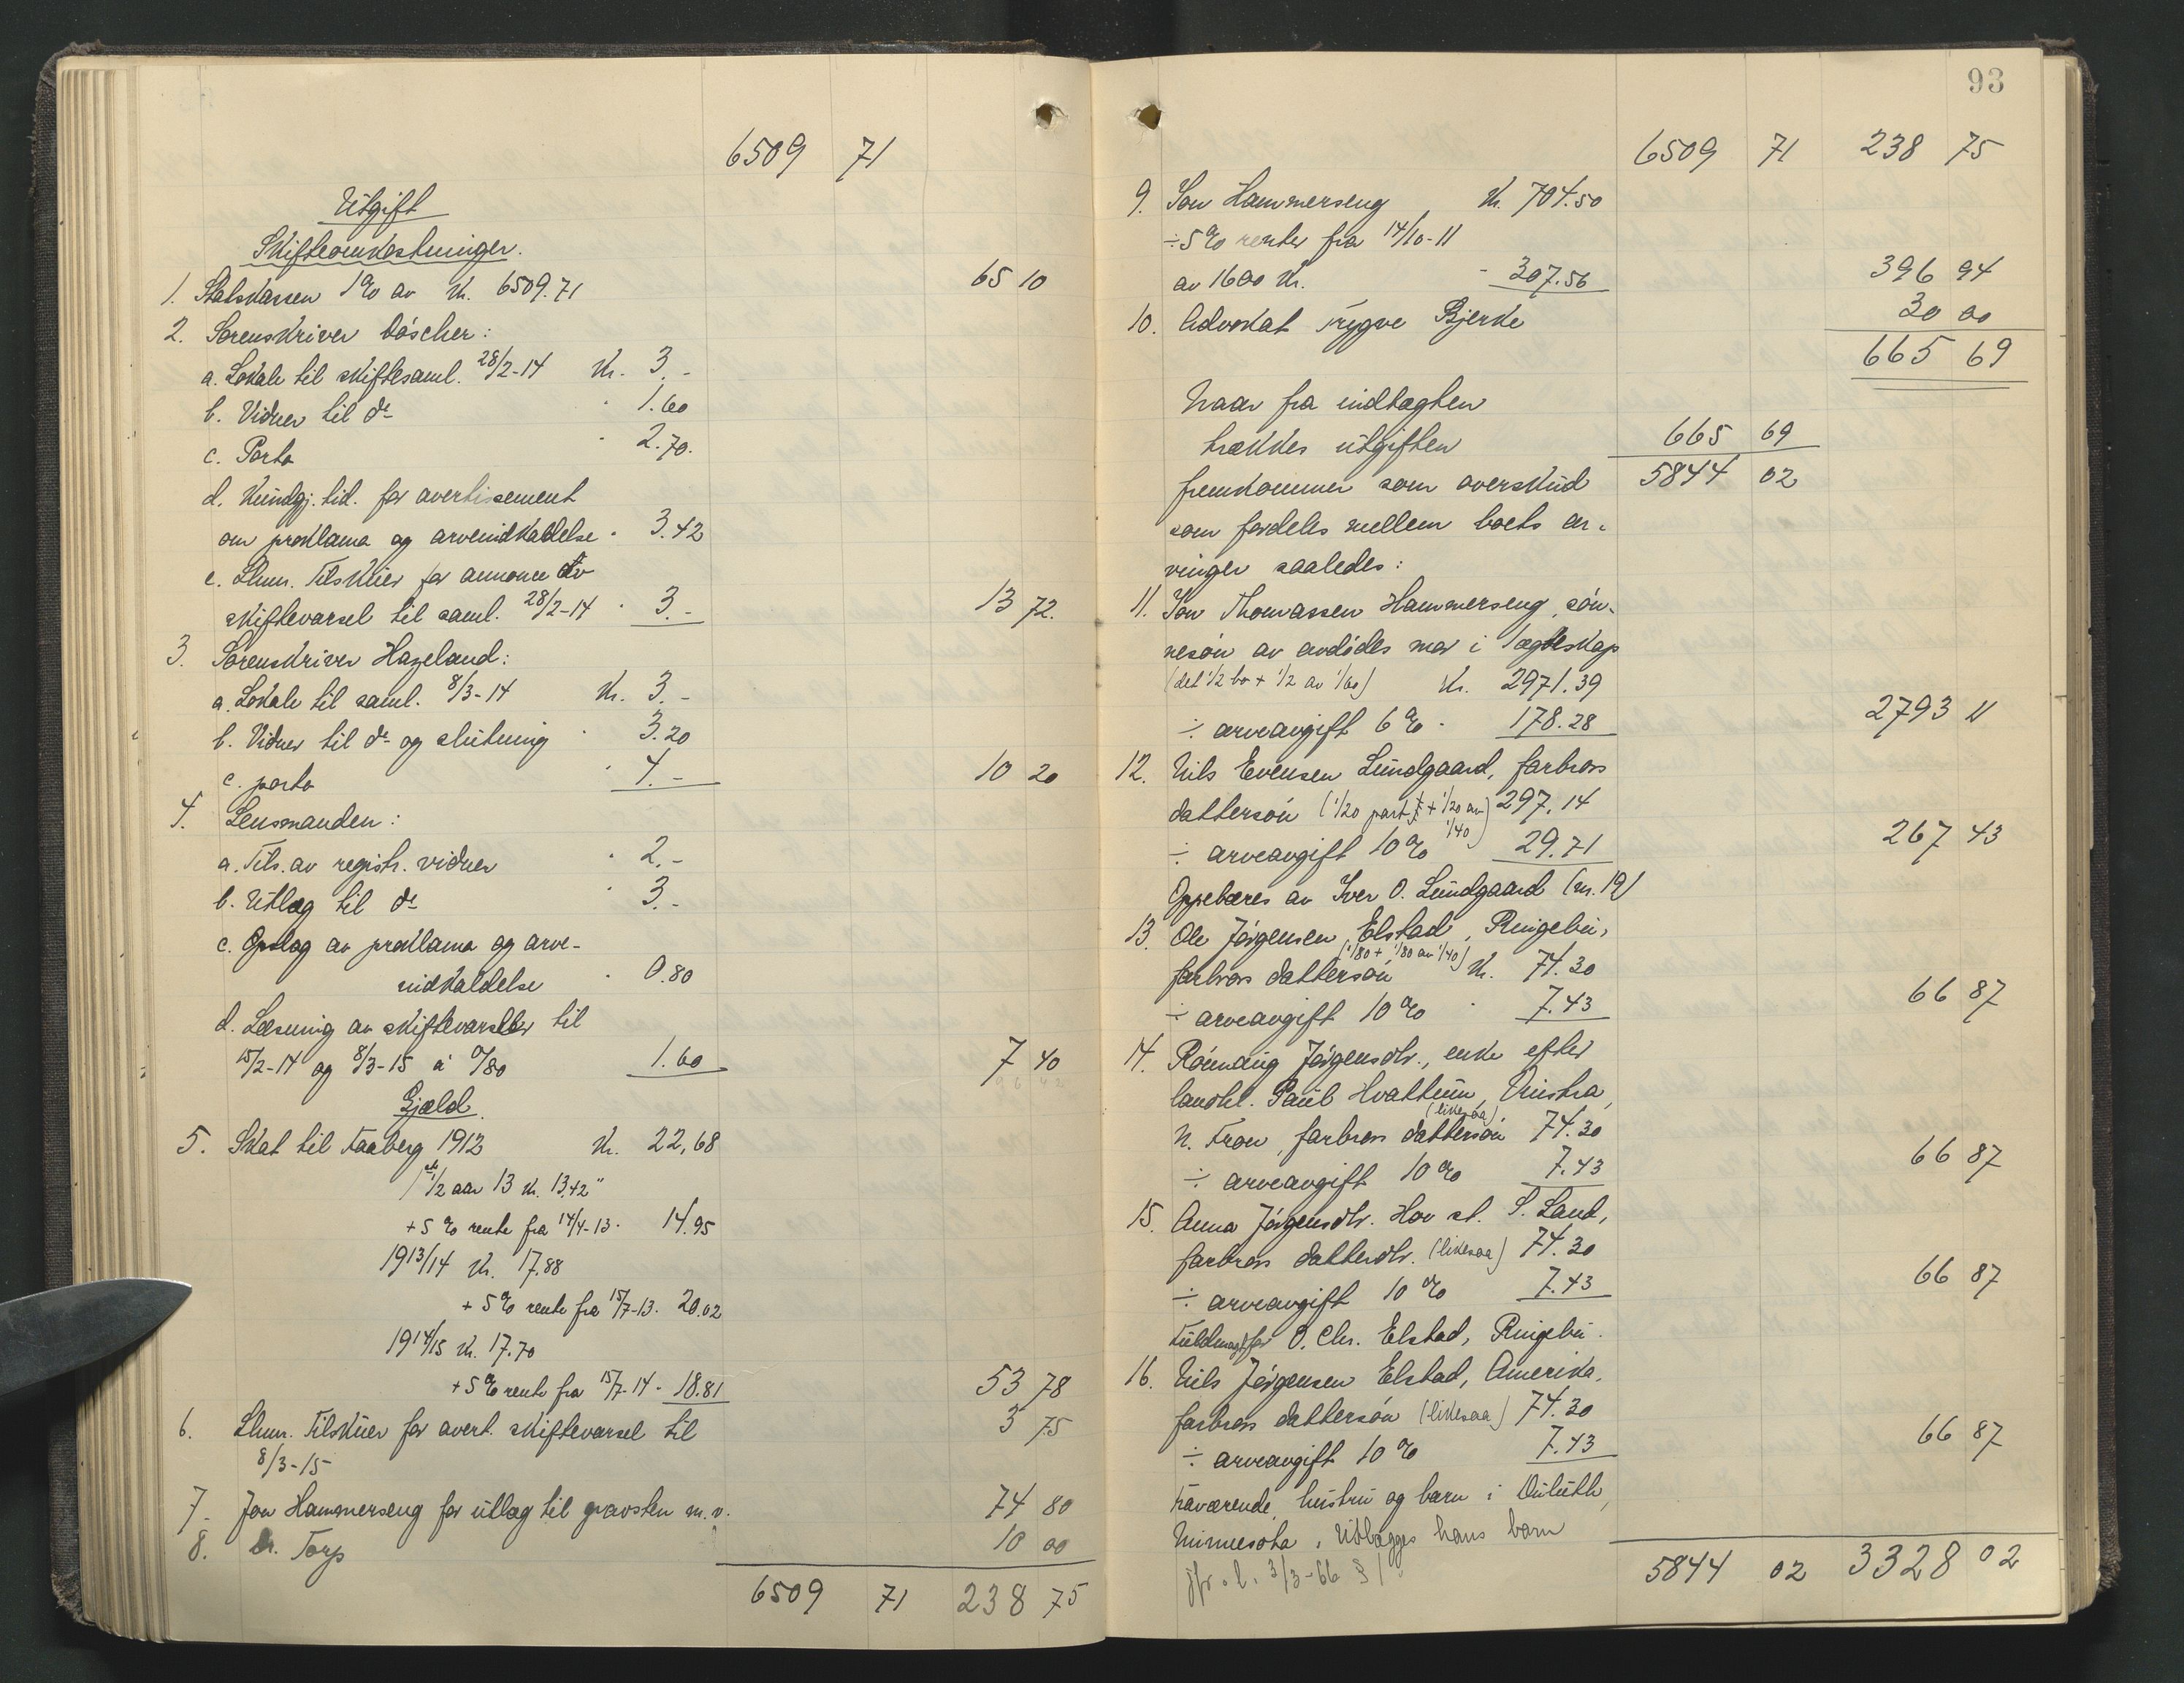 6509 71
Utgift
Skifteomkostninger.
1. Statskassen 1% av Kr. 6509.71 65 10
2. Sorenskriver Löscher:
a. Lokale til skiftesaml. 28/2-14 Kr. 3.-
b. Vidner til do 1.60
c. Porto 2.70.
d. Kundgj. tid. for avertissement
om proklama og arveindkaldelse 3.42
e. Lhmr. Tilskuer for annonce av
skiftevarsel til saml. 28/2-14 3.- 13 72.
3. Sorenskriver Hazeland:
a. Lokale til saml. 8/3-14 Kr. 3.-
b. Vidner til do og slutning 3.20
c. porto 4.- 10 20
4. Lensmanden:
a. Tils. av registr. vidner 2.-
b. Utlæg til do 3.-
c. Opslag av proklama og arve-
indkaldelse 0.80
d. Læsning av skiftevarsler til
15/2-14 og 8/3-15 à 0/80 1.60 7 40
Gjæld
5. Skat til Faaberg 1912 Kr. 22,68
1ste 1/2 aar 13 Kr. 13,42"
+ 5% rente fra 14/4-13. 14.95
1913/14 Kr. 17.88
+ 5% rente fra 15/7-13. 20.02
1914/15 Kr. 17.70
+ 5% rente fra 15/7-14 - 18.81 53 78
6. Lhmr. Tilskuer for avert. skiftevarsel til 3 75
8/3-15
7. Jon Hammerseng for utlæg til gravsten m.v. 74 80
8. Dr. Torp 10 00
6509 71 238 75
93
6509 71 238 75
9. Jon Hammerseng Kr. 704.50
÷ 5% renter fra 14/10-11
av 1600 Kr. - 307.56 396 94
10. Advokat Trygve Bjerke 30 00
665 69
Naar fra indtægten
trækkes utgiften 665 69
fremkommer som overskud 5844 02
som fordeles mellem boets ar-
vinger saaledes:
11. Jon Thomassen Hammerseng, sön-
nesön av avdödes mor i 1 ægteskap
(det 1/2 bo + 1/2 av 1/60) Kr. 2971.39
÷ arveavgift 6% - 178.28 2793 11
12. Nils Evensen Lundgaard, farbrors
dattersön (1/20 part + 1/20 av 1/40) 297.14
÷ arveavgift 10% 29.71 267 43
Oppebæres av Iver O. Lundgaard (nr. 19)
13. Ole Jörgensen Elstad, Ringebu,
(1/80 + 1/80 av 1/40)
farbrors dattersön Kr. 74.30
÷ arveavgift 10% 7.43 66 87
14. Rönnaug Jörgensdtr., enke efter
landhl. Paul Hvattum, Vinstra,
(likesaa)
N. Fron, farbrors dattersön 74.30
÷ arveavgift 10% 7.43 66 87
15. Anna Jörgensdtr. Hov st. S. Land,
farbrors datterdtr. (likesaa) 74.30
÷ arveavgift 10% 7.43 66 87
Fuldmagt for O. Chr. Elstad, Ringebu.
16. Nils Jörgensen Elstad, Amerika,
farbrors dattersön (likesaa) 74.30
÷ arveavgift 10% 7.43 66 87
Fraværende, hustru og barn i Duluth,
Minnesota. Utlægges hans barn
jfr. l. 3/3-66 § 1
5844 02 3328 02